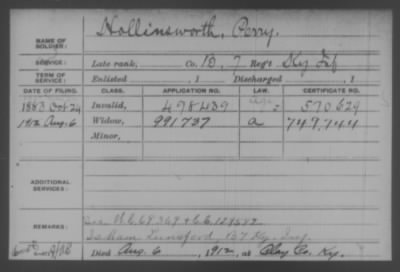 NAME OF SOLDIER: Hollinsworth, Perry.
SERVICE: Late rank, Co. B, 7 Reg't Ky Inf
TERM OF SERVICE: Enlisted , 1 Discharged , 1
DATE OF FILING. CLASS. APPLICATION NO. LAW. CERTIFICATE NO.
1883 Oct 24 Invalid, 498439 570629
1912 Aug. 6 Widow, 991737 a 749,744
Minor,
ADDITIONAL SERVICES:
REMARKS:
Isham Lunsford B 7 Ky. Inf.
Died Aug. 6 , 1912, at Clay Co. Ky.